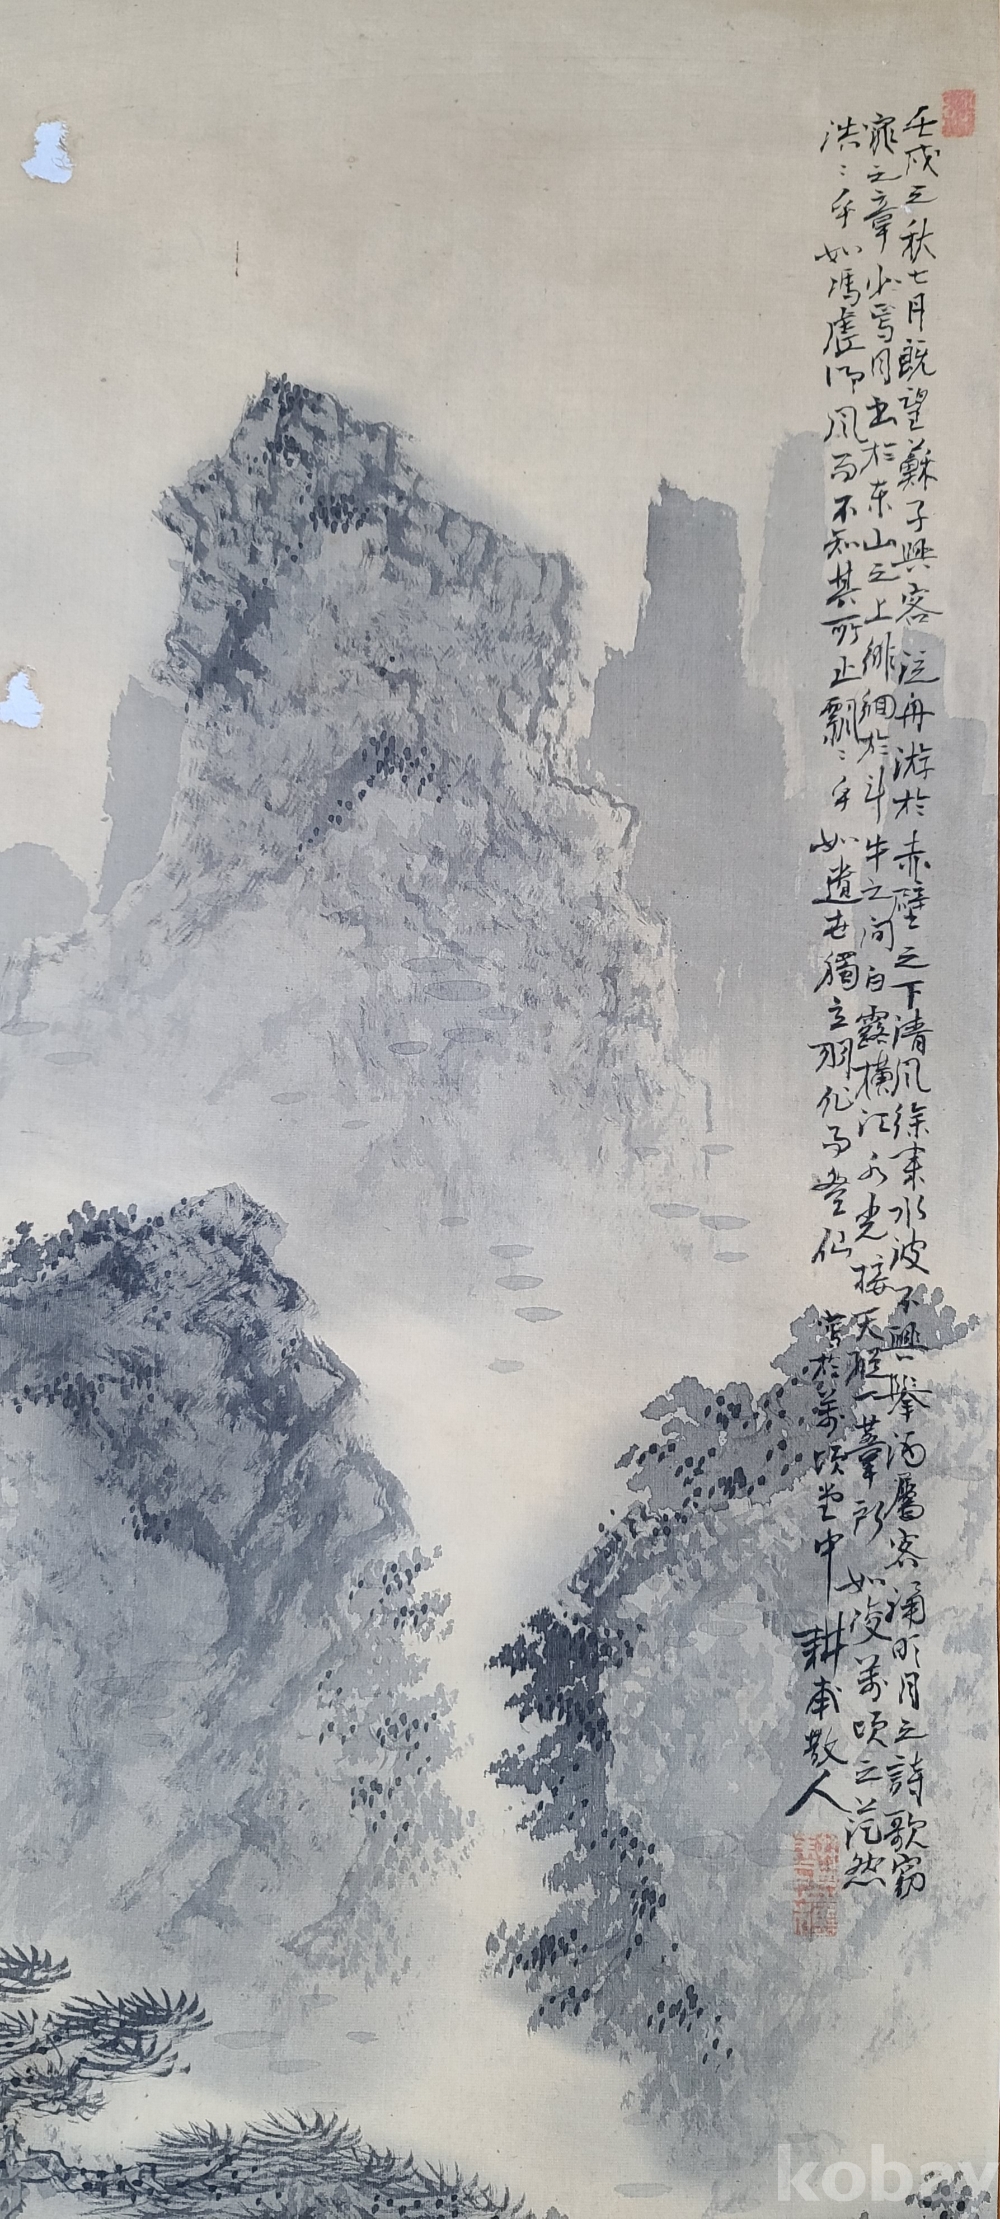 壬戌之秋七月既望蘇子與客泛舟游於赤壁之下清風徐來水波不興舉酒屬客誦明月之詩歌窈
窕之章少焉月出於東山之上徘徊於斗牛之间白露横江水光接天縱一葦所如凌萬頃之茫然
浩〻乎如馮虛御風而不知其所止飄〻乎如遺世獨立羽化而登仙 寫於萬頃堂中 耕甫散人
kobay